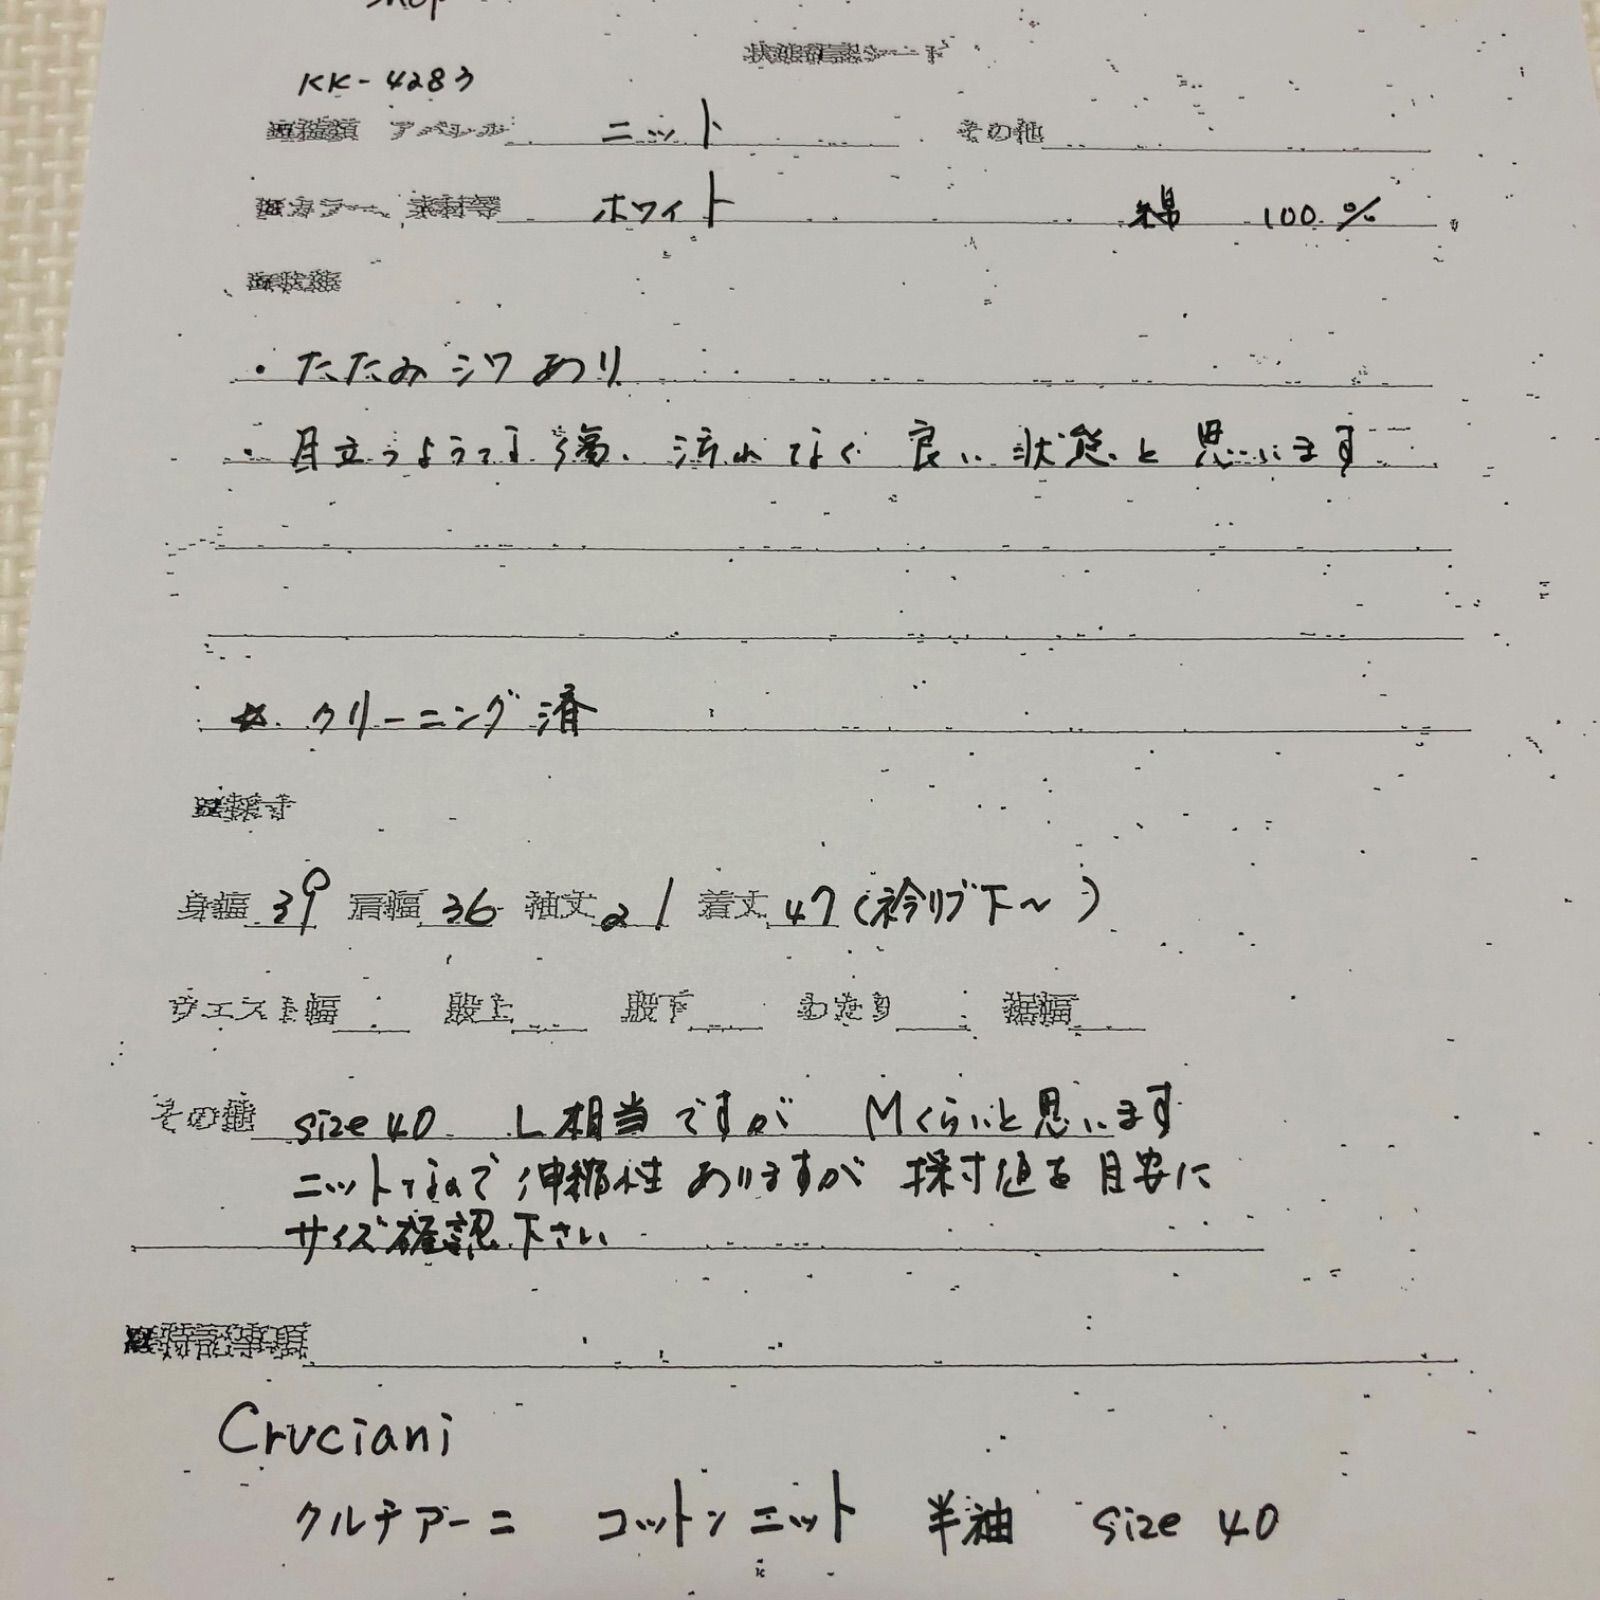 shop
状態確認シート
KK-4283
■種類 アパレル ニット その他
■カラー、素材等 ホワイト 綿 100%
■状態
・たたみジワあり
・目立つような傷、汚れなく良い状態と思います
☆クリーニング済
■採寸
身幅 39 肩幅 36 袖丈 21 着丈 47(衿リブ下~)
ウエスト幅 股上 股下 わたり 裾幅
その他 size 40 L相当ですが Mくらいと思います
ニットなので伸縮性ありますが 採寸値を目安に
サイズ確認下さい
■特記事項
Cruciani
クルチアーニ コットンニット 半袖 size 40